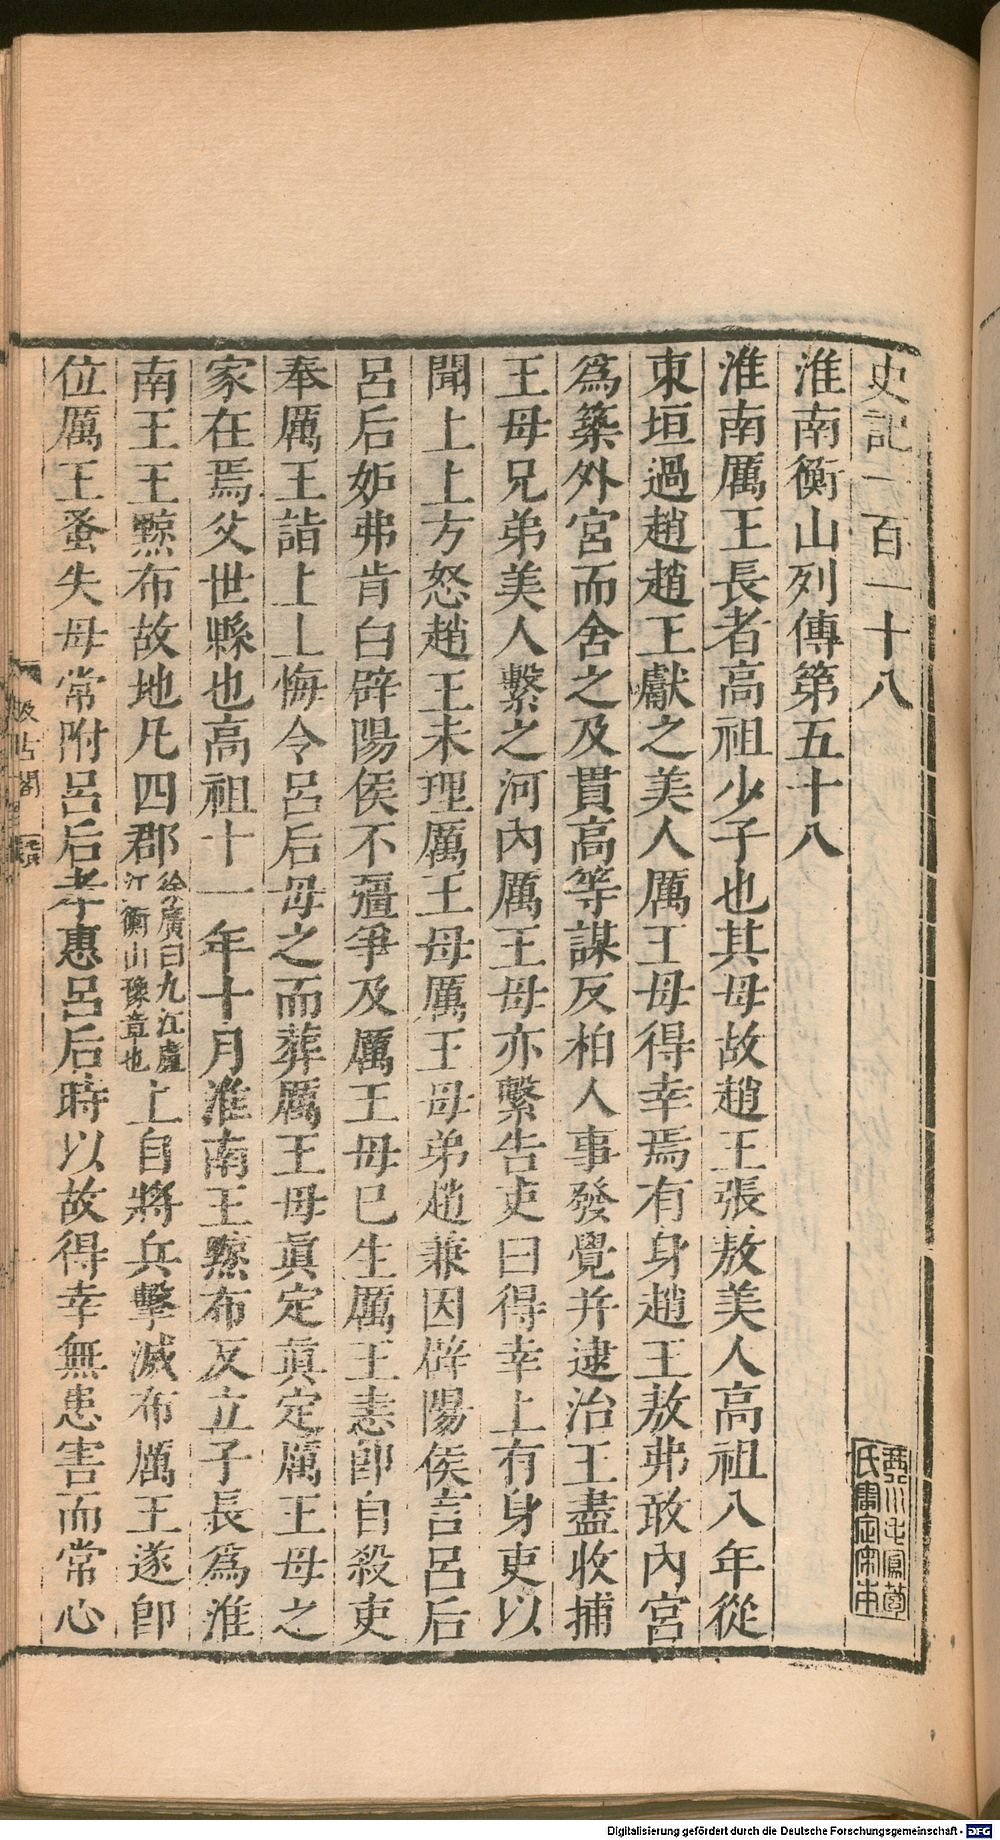 史記一百一十八
淮南衡山列傳第五十八
淮南厲王長者高祖少子也其母故趙王張敖美人高祖八年從
東垣過趙趙王獻之美人厲王母得幸焉有身趙王敖弗敢內宮
爲築外宮而舍之及貫高等謀反柏人事發覺并逮治王盡收捕
王母兄弟美人繫之河內厲王母亦繫告吏曰得幸上有身吏以
聞上上方怒趙王未理厲王母厲王母弟趙兼因辟陽侯言呂后
呂后妒弗肯白辟陽侯不彊爭及厲王母已生厲王恚卽自殺吏
奉厲王詣上上悔令呂后母之而葬厲王母眞定眞定厲王母之
家在焉父世縣也高祖十一年十月淮南王黥布反立子長爲淮
南王王黥布故地凡四郡徐廣曰九江廬江衡山豫章也上自將兵擊滅布厲王遂卽
位厲王蚤失母常附呂后孝惠呂后時以故得幸無患害而常心
汲古閣
氏審定宋本
Digitalisierung gefördert durch die Deutsche Forschungsgemeinschaft - DFG